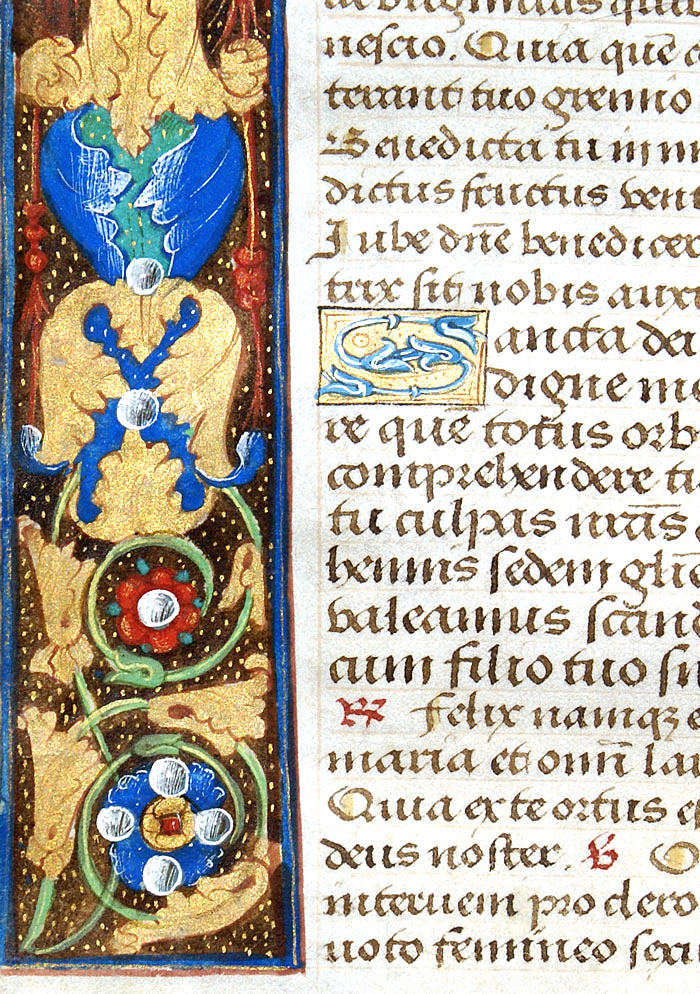 nescio. Quia quē c
terant tuo gremio
Benedicta tu in m
dictus fructus ven
Iube dn̄e benedicer
trix sit nobis auxi
Sancta dei
digne m
re que totus orb
comprehendere
tu culpas nr̄as
hennis sedem gliē
valeamus scan
cum filio tuo
℟ Felix namqꝫ
maria et omn̄ lau
Quia ex te ortus e
deus noster. ℣ O
interueni pro clero
uoto femineo sexu